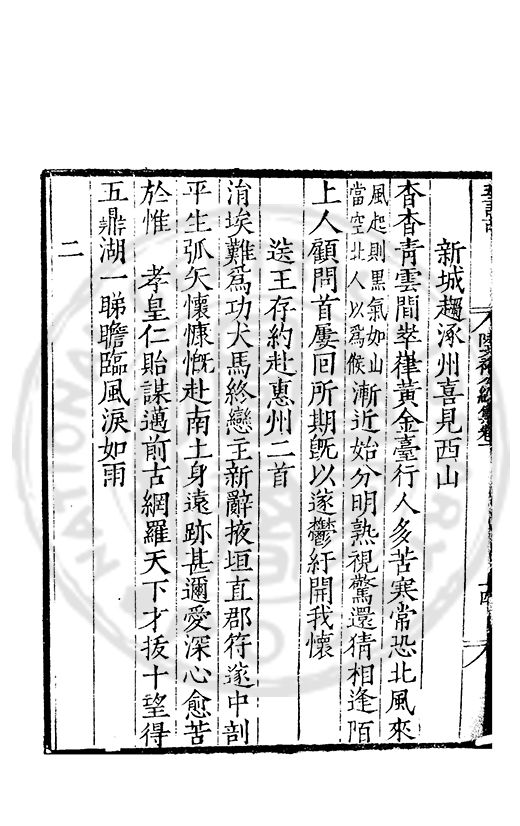 新城趨涿州喜見西山
杳杳青雲間崒嵂黃金臺行人多苦寒常恐北風來
風起則黑氣如山
當空北人以爲候
漸近始分明熟視驚還猜相逢陌
上人顧問首屢回所期旣以遂鬱紆開我懷
送王存約赴惠州二首
涓埃難爲功犬馬終戀主新辭掖垣直郡符遂中剖
平生弧矢懷慷慨赴南土身遠跡甚邇愛深心愈苦
於惟 孝皇仁貽謀邁前古網羅天下才拔十望得
五鼎湖一睇瞻臨風淚如雨
二